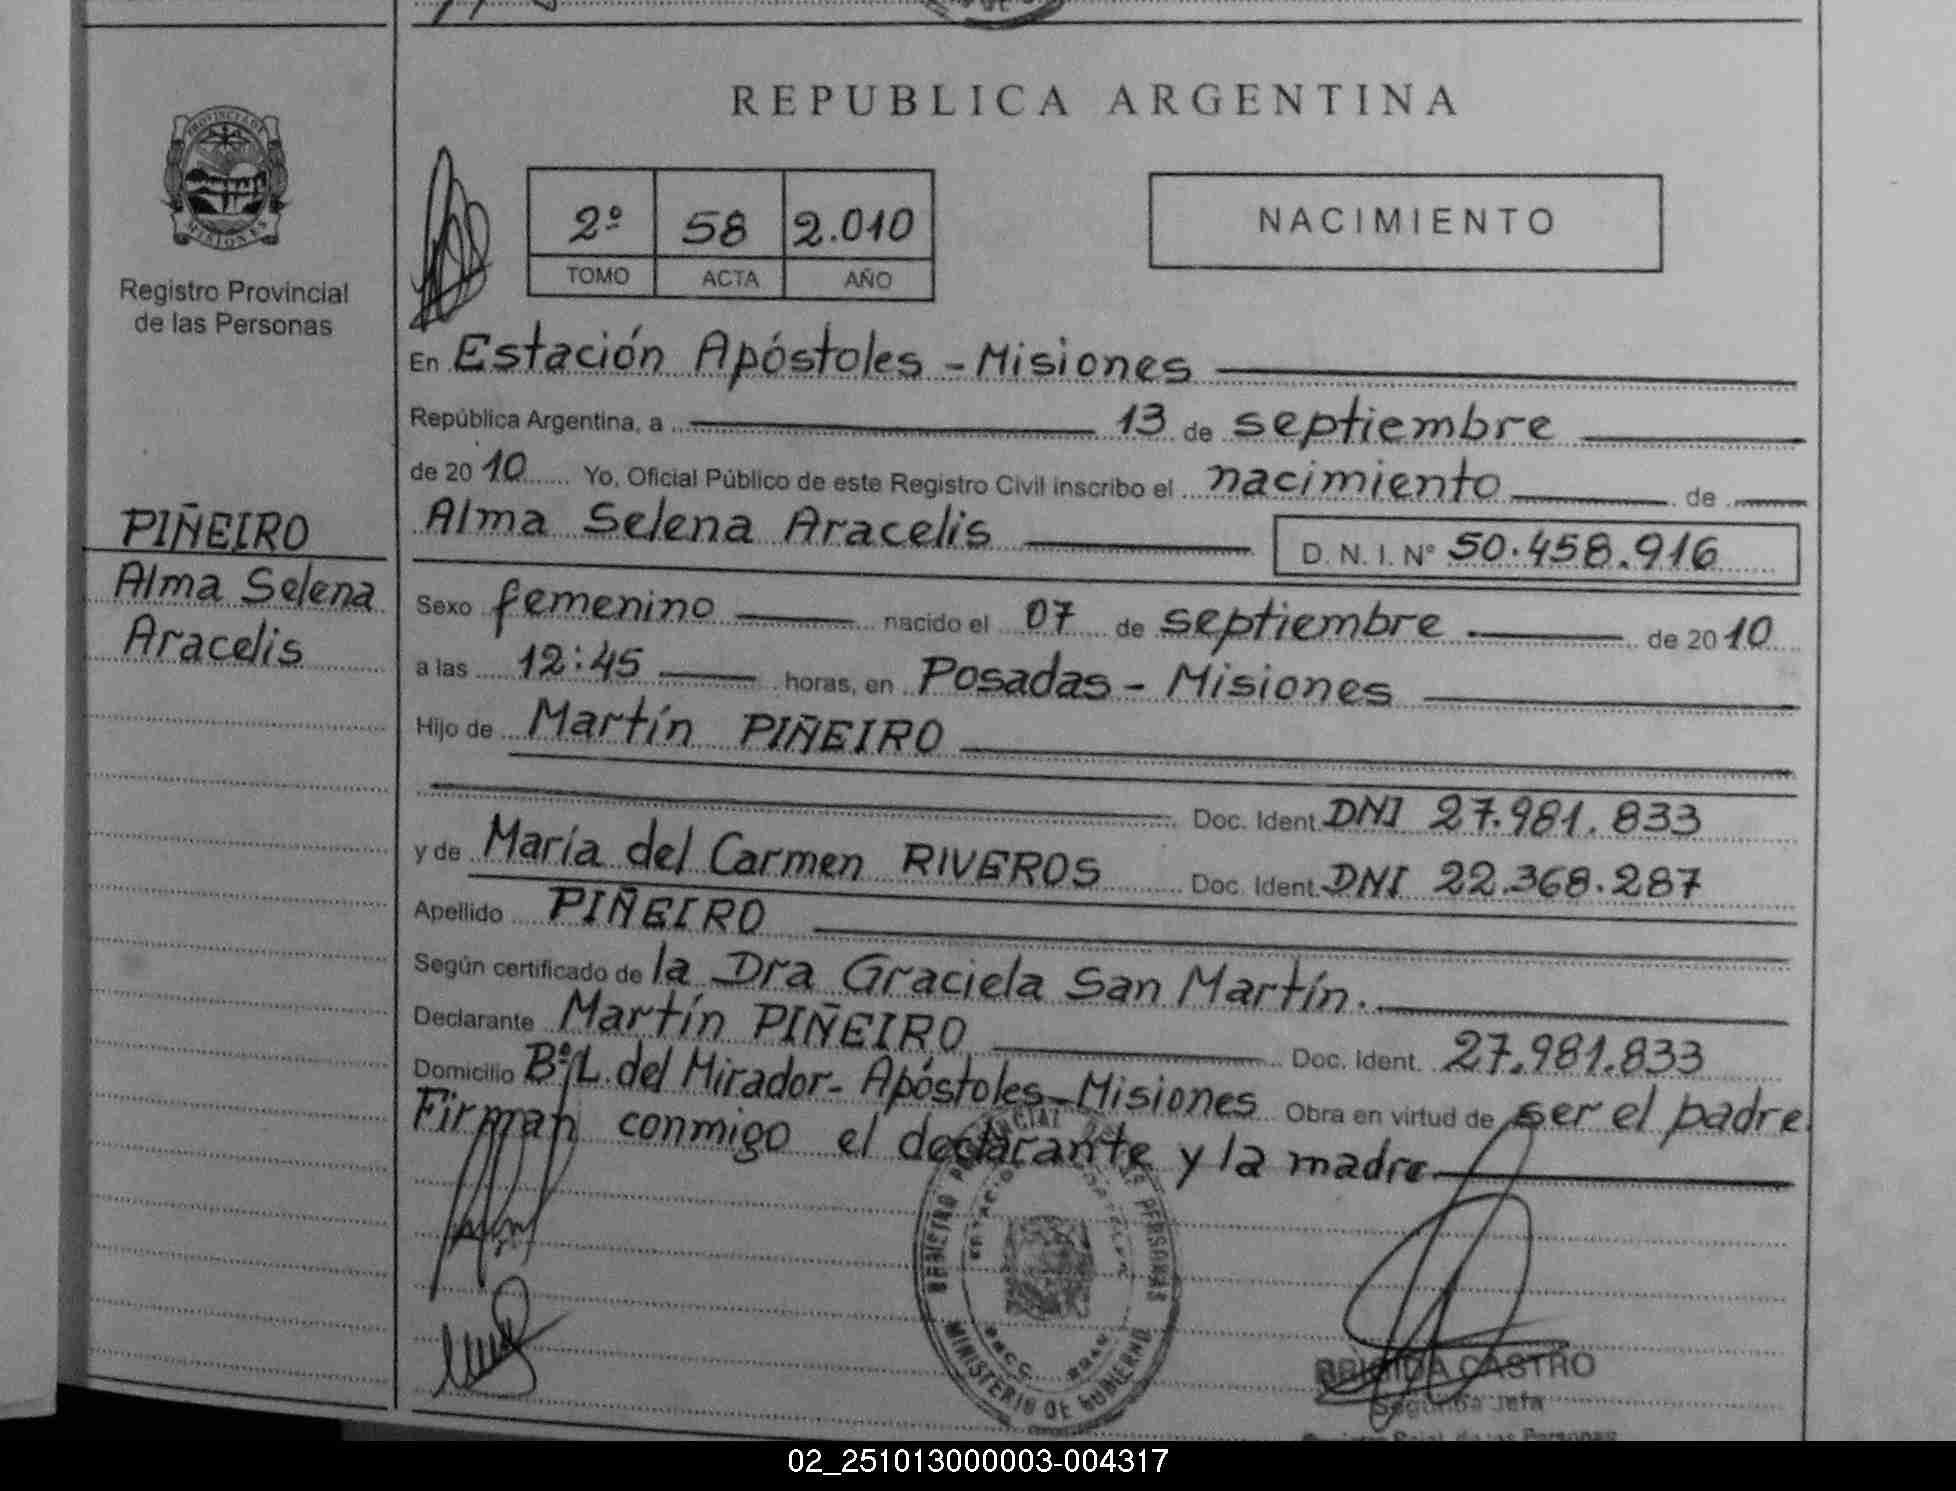 REPUBLICA ARGENTINA
PROVINCIA DE
MISIONES
Registro Provincial
de las Personas
2º 58 2.010
TOMO ACTA AÑO
NACIMIENTO
PIÑEIRO
Alma Selena
Aracelis
En Estación Apóstoles - Misiones
República Argentina, a 13 de septiembre
de 20 10 Yo, Oficial Público de este Registro Civil inscribo el nacimiento de
Alma Selena Aracelis D. N. I. Nº 50.458.916
Sexo femenino nacido el 07 de septiembre de 20 10
a las 12:45 horas, en Posadas - Misiones
Hijo de Martín PIÑEIRO
Doc. Ident. DNI 27.981.833
y de María del Carmen RIVEROS Doc. Ident. DNI 22.368.287
Apellido PIÑEIRO
Según certificado de la Dra Graciela San Martín.
Declarante Martín PIÑEIRO Doc. Ident. 27.981.833
Domicilio Bº/L. del Mirador - Apóstoles - Misiones Obra en virtud de ser el padre.
Firman conmigo el declarante y la madre
REGISTRO PERSONAS
MINISTERIO DE GOBIERNO
BRIGIDA CASTRO
Segunda Jefa
de las Personas
02_251013000003-004317